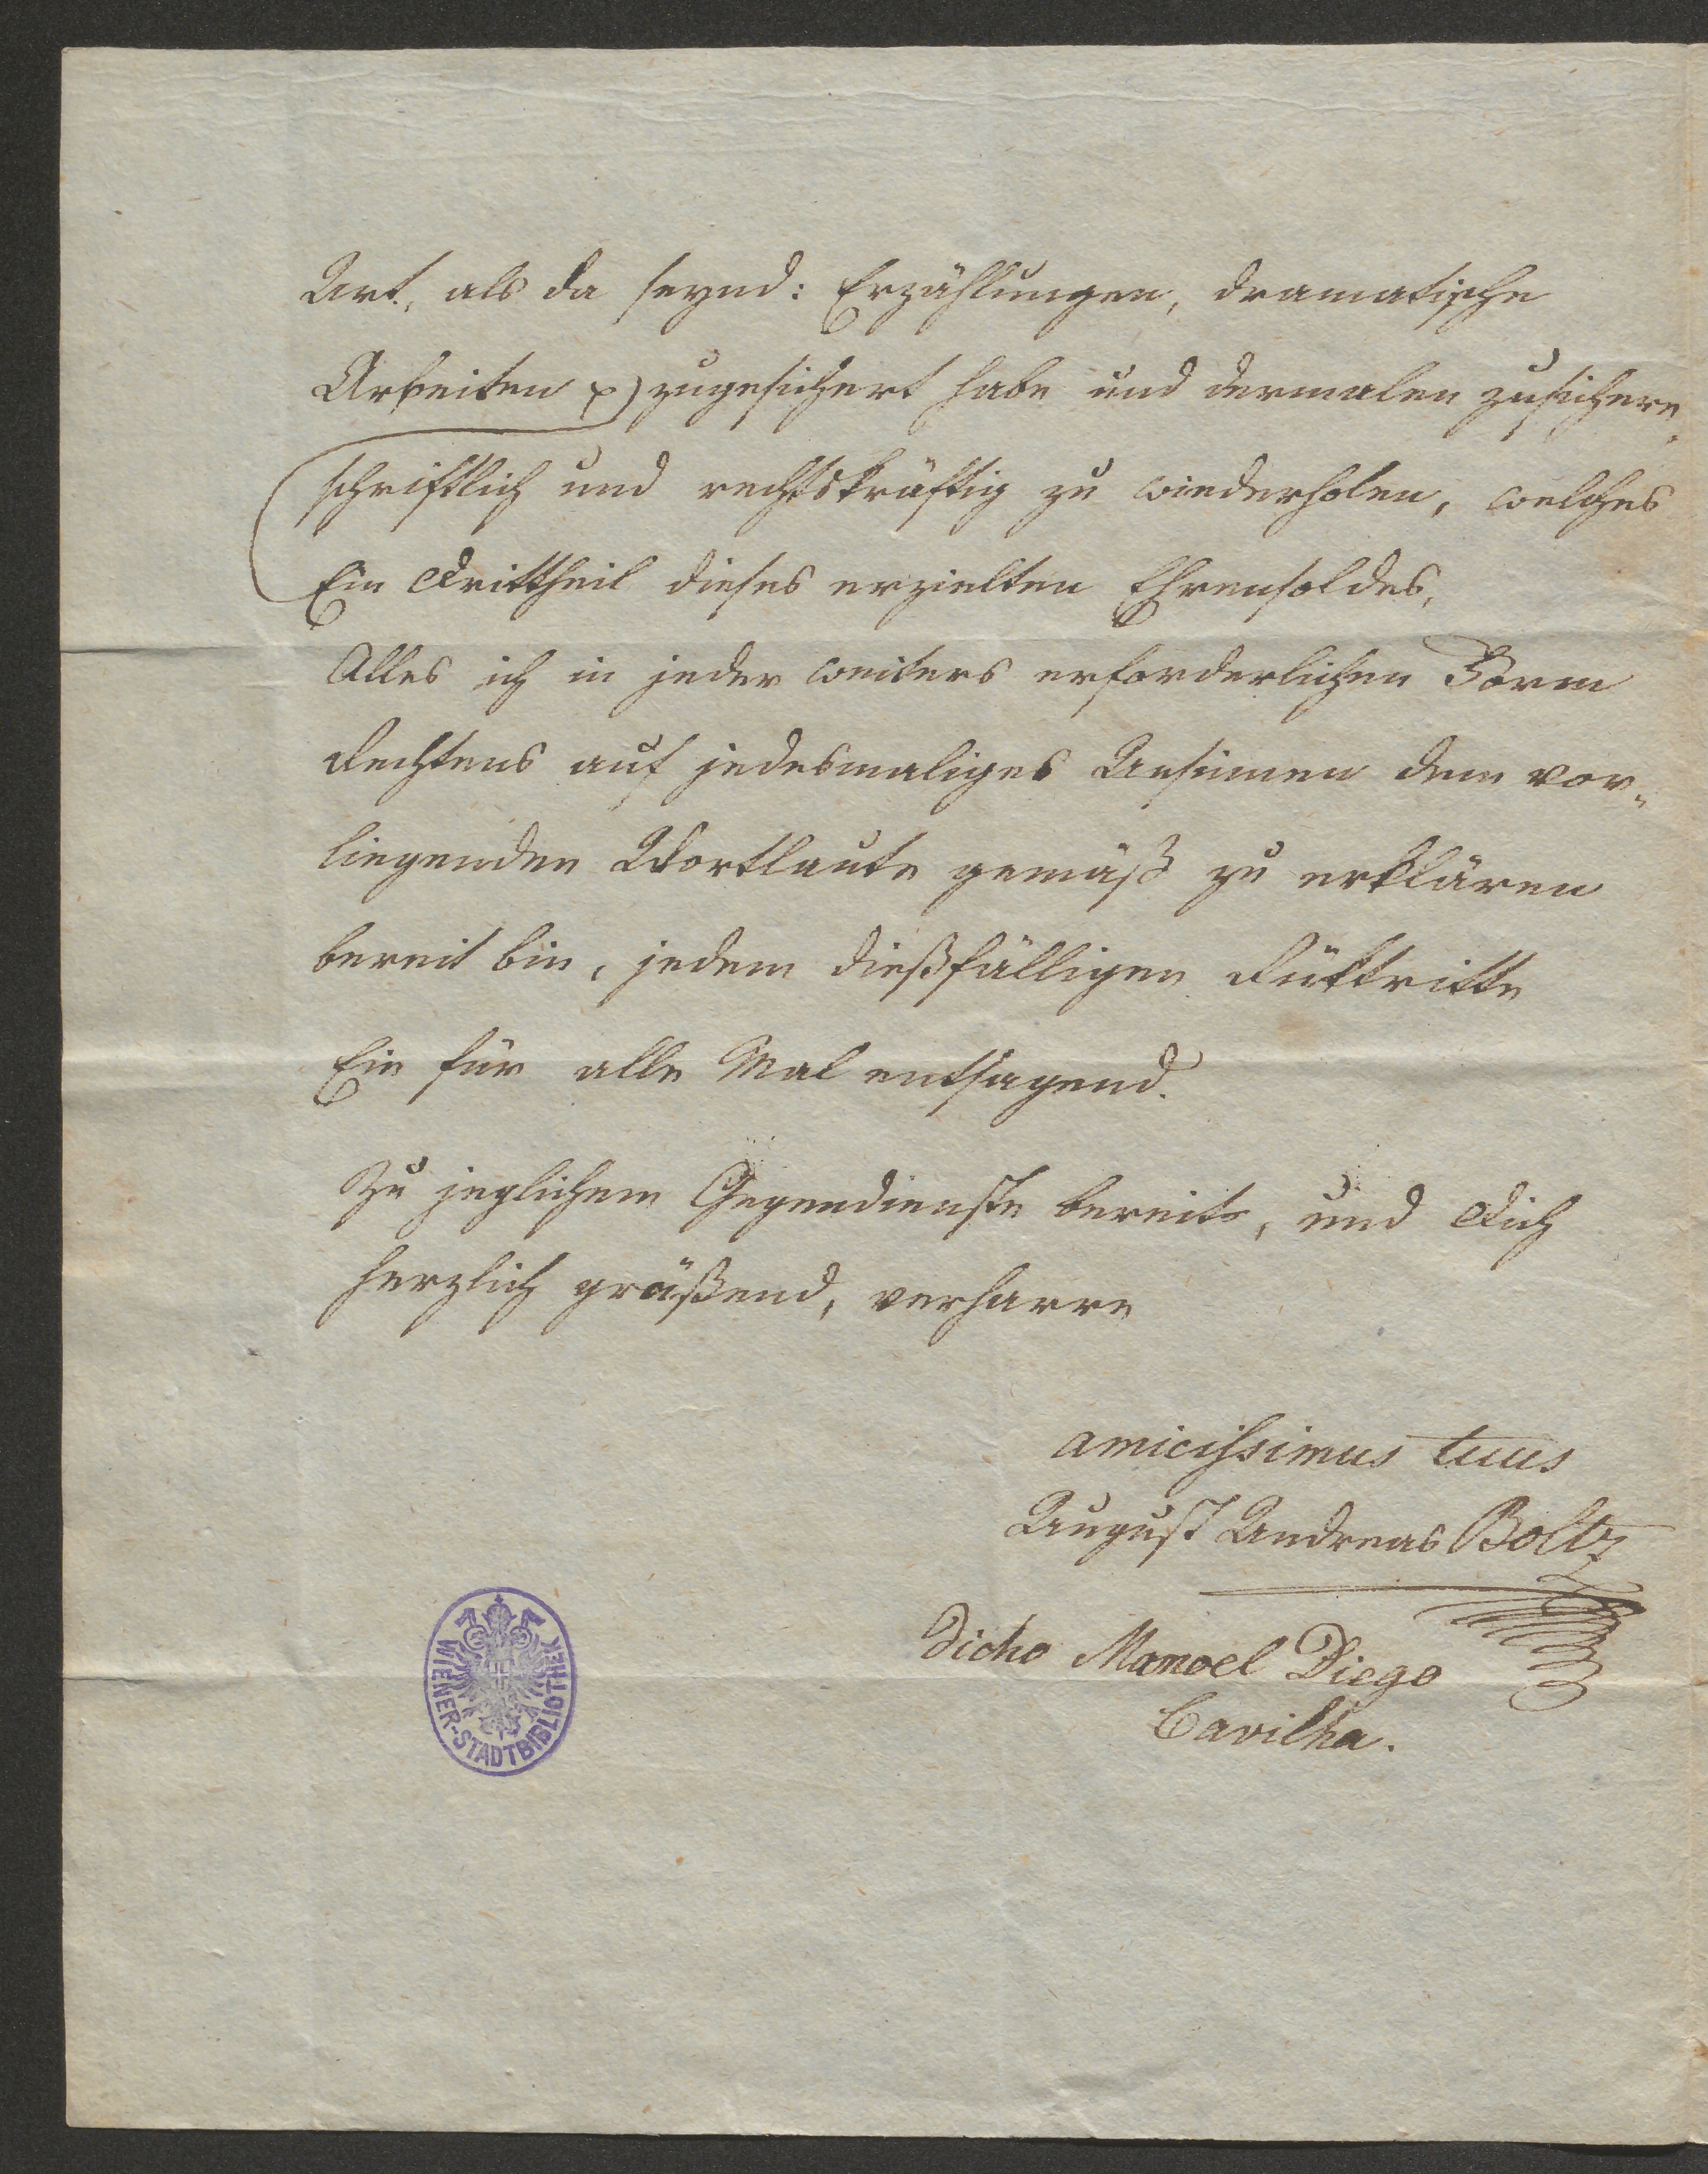 Art, als da seynd: Erzählungen, dramatische
Arbeiten p) zugesichert habe und dermalen zusichere,
schriftlich und rechtskräftig zu wiederholen, welches
Ein Drittheil dieses erzielten Ehrensoldes,
Alles ich in jeder weiters erforderlichen Form
Rechtens auf jedesmaliges Ansinnen dem vor„
liegenden Wortlaute gemäß zu erklären
bereit bin, jedem dießfälligen Rüktritte
Ein für alle Mal entsagend.
Zu jeglichem Gegendienste bereit, und Dich
herzlich grüßend, verharre
amicissimus tuus
August Andreas Boltz
dicho Manoel Diego
Cavilha.
WIENER-STADTBIBLIOTHEK